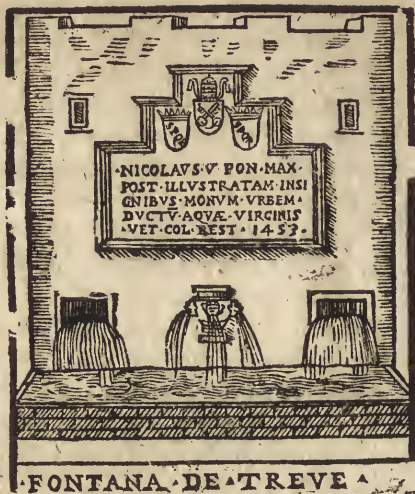 SPQR SPQR
·NICOLAVS·V·PON·MAX·
POST·ILLVSTRATAM·INSI
GNIBVS·MONVM·VRBEM·
DVCTV̅·AQVÆ·VIRGINIS
·VET·COL·REST·1453·
·FONTANA·DE·TREVE·